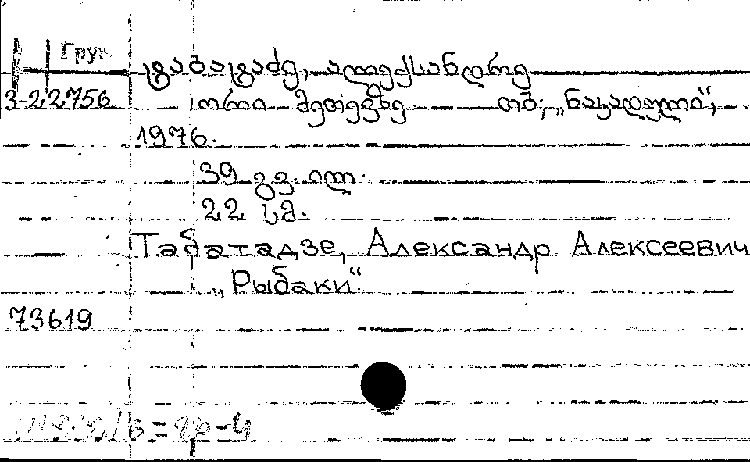 Груз
ტაბატაძე, ალექსანდრე
3-22756 ორი მეთევზე თბ., „ნაკადული“,
1976.
39 გვ. ილ.
22 სმ.
Табатадзе, Александр Алексеевич
„Рыбаки“
73619